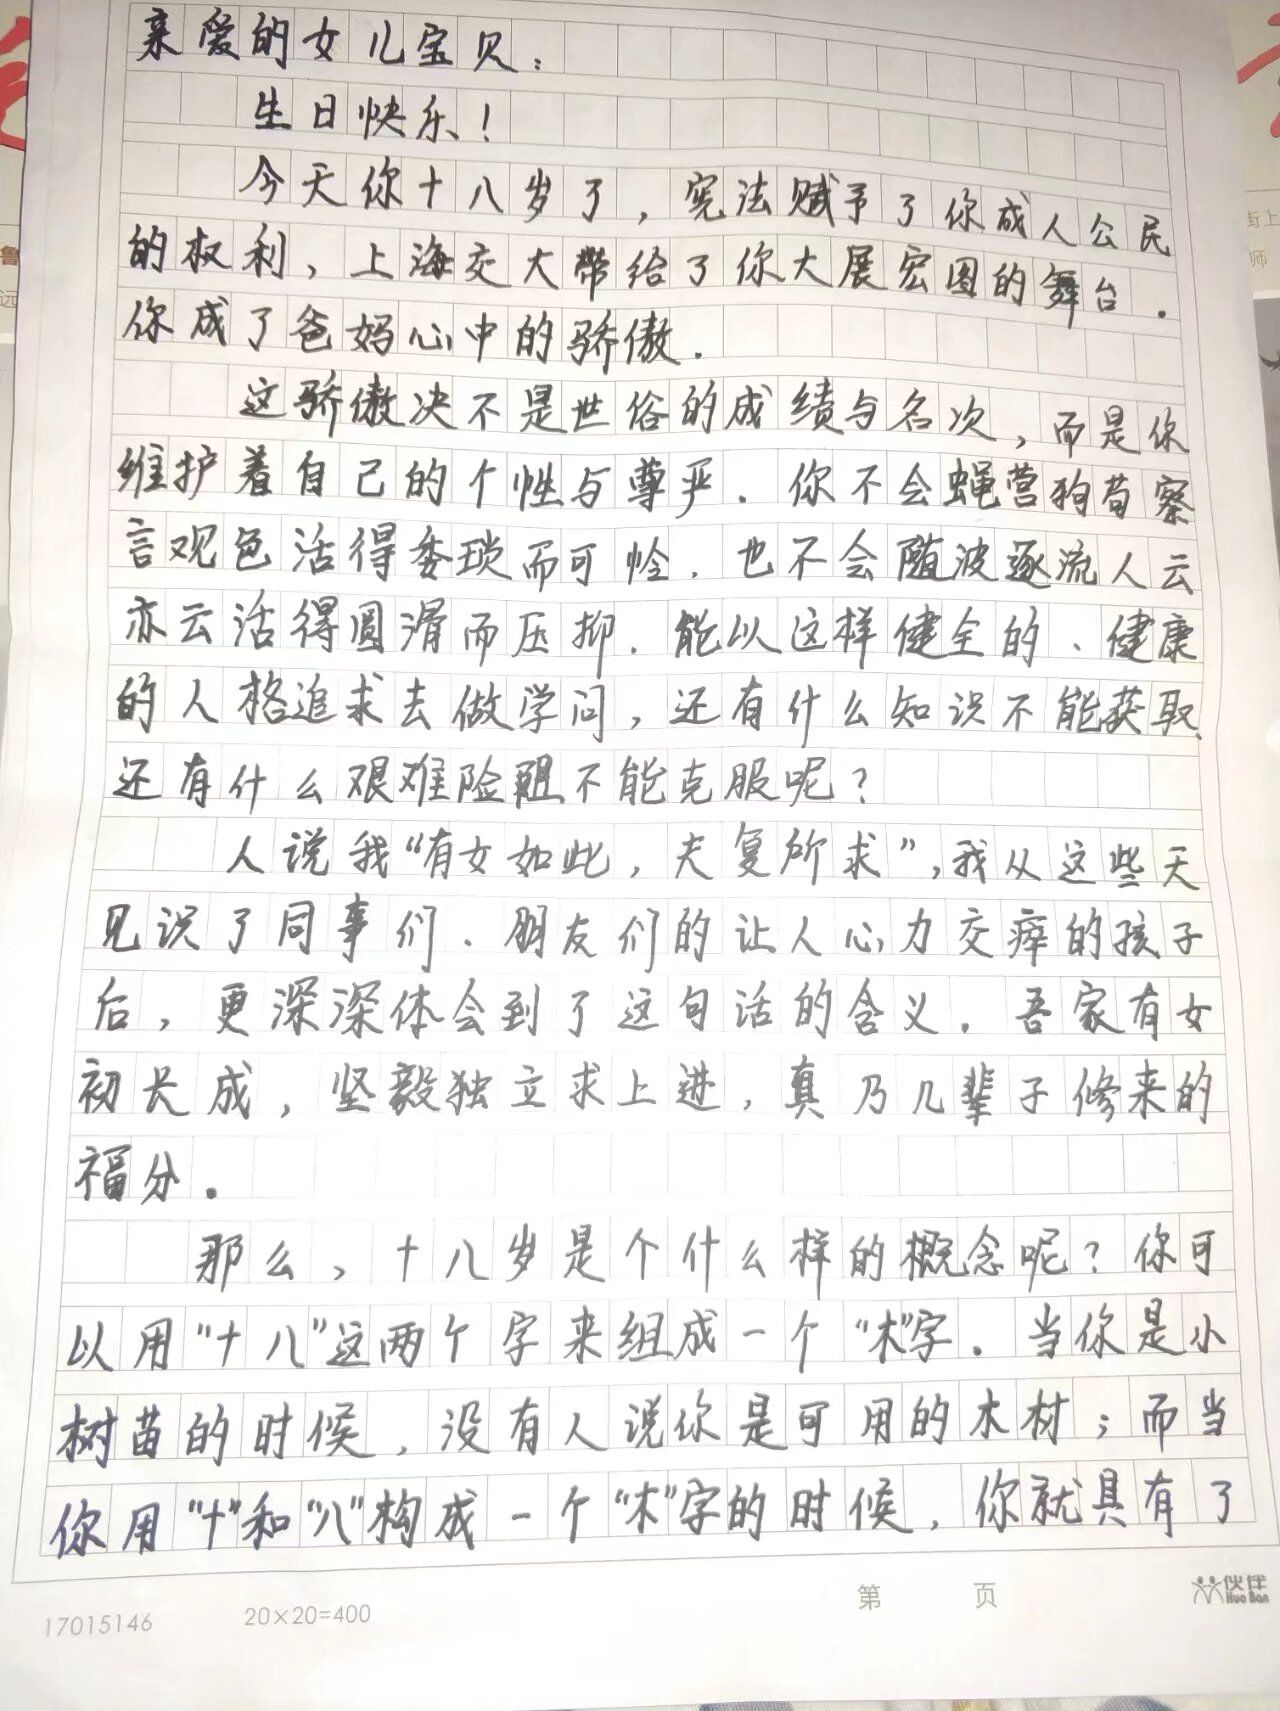 亲爱的女儿宝贝：
生日快乐！
今天你十八岁了，宪法赋予了你成人公民
的权利，上海交大带给了你大展宏图的舞台．
你成了爸妈心中的骄傲．
这骄傲决不是世俗的成绩与名次，而是你
维护着自己的个性与尊严．你不会蝇营狗苟察
言观色活得委琐而可怜．也不会随波逐流人云
亦云活得圆滑而压抑．能以这样健全的、健康
的人格追求去做学问，还有什么知识不能获取、
还有什么艰难险阻不能克服呢？
人说我“有女如此，夫复所求”，我从这些天
见识了同事们、朋友们的让人心力交瘁的孩子
后，更深深体会到了这句话的含义．吾家有女
初长成，坚毅独立求上进，真乃几辈子修来的
福分。
那么，十八岁是个什么样的概念呢？你可
以用“十八”这两个字来组成一个“木”字．当你是小
树苗的时候，没有人说你是可用的木材；而当
你用“十”和“八”构成一个“木”字的时候，你就具有了
17015146 20×20=400 第 页 伙伴 Huo Ban
街上
师
鲁
远